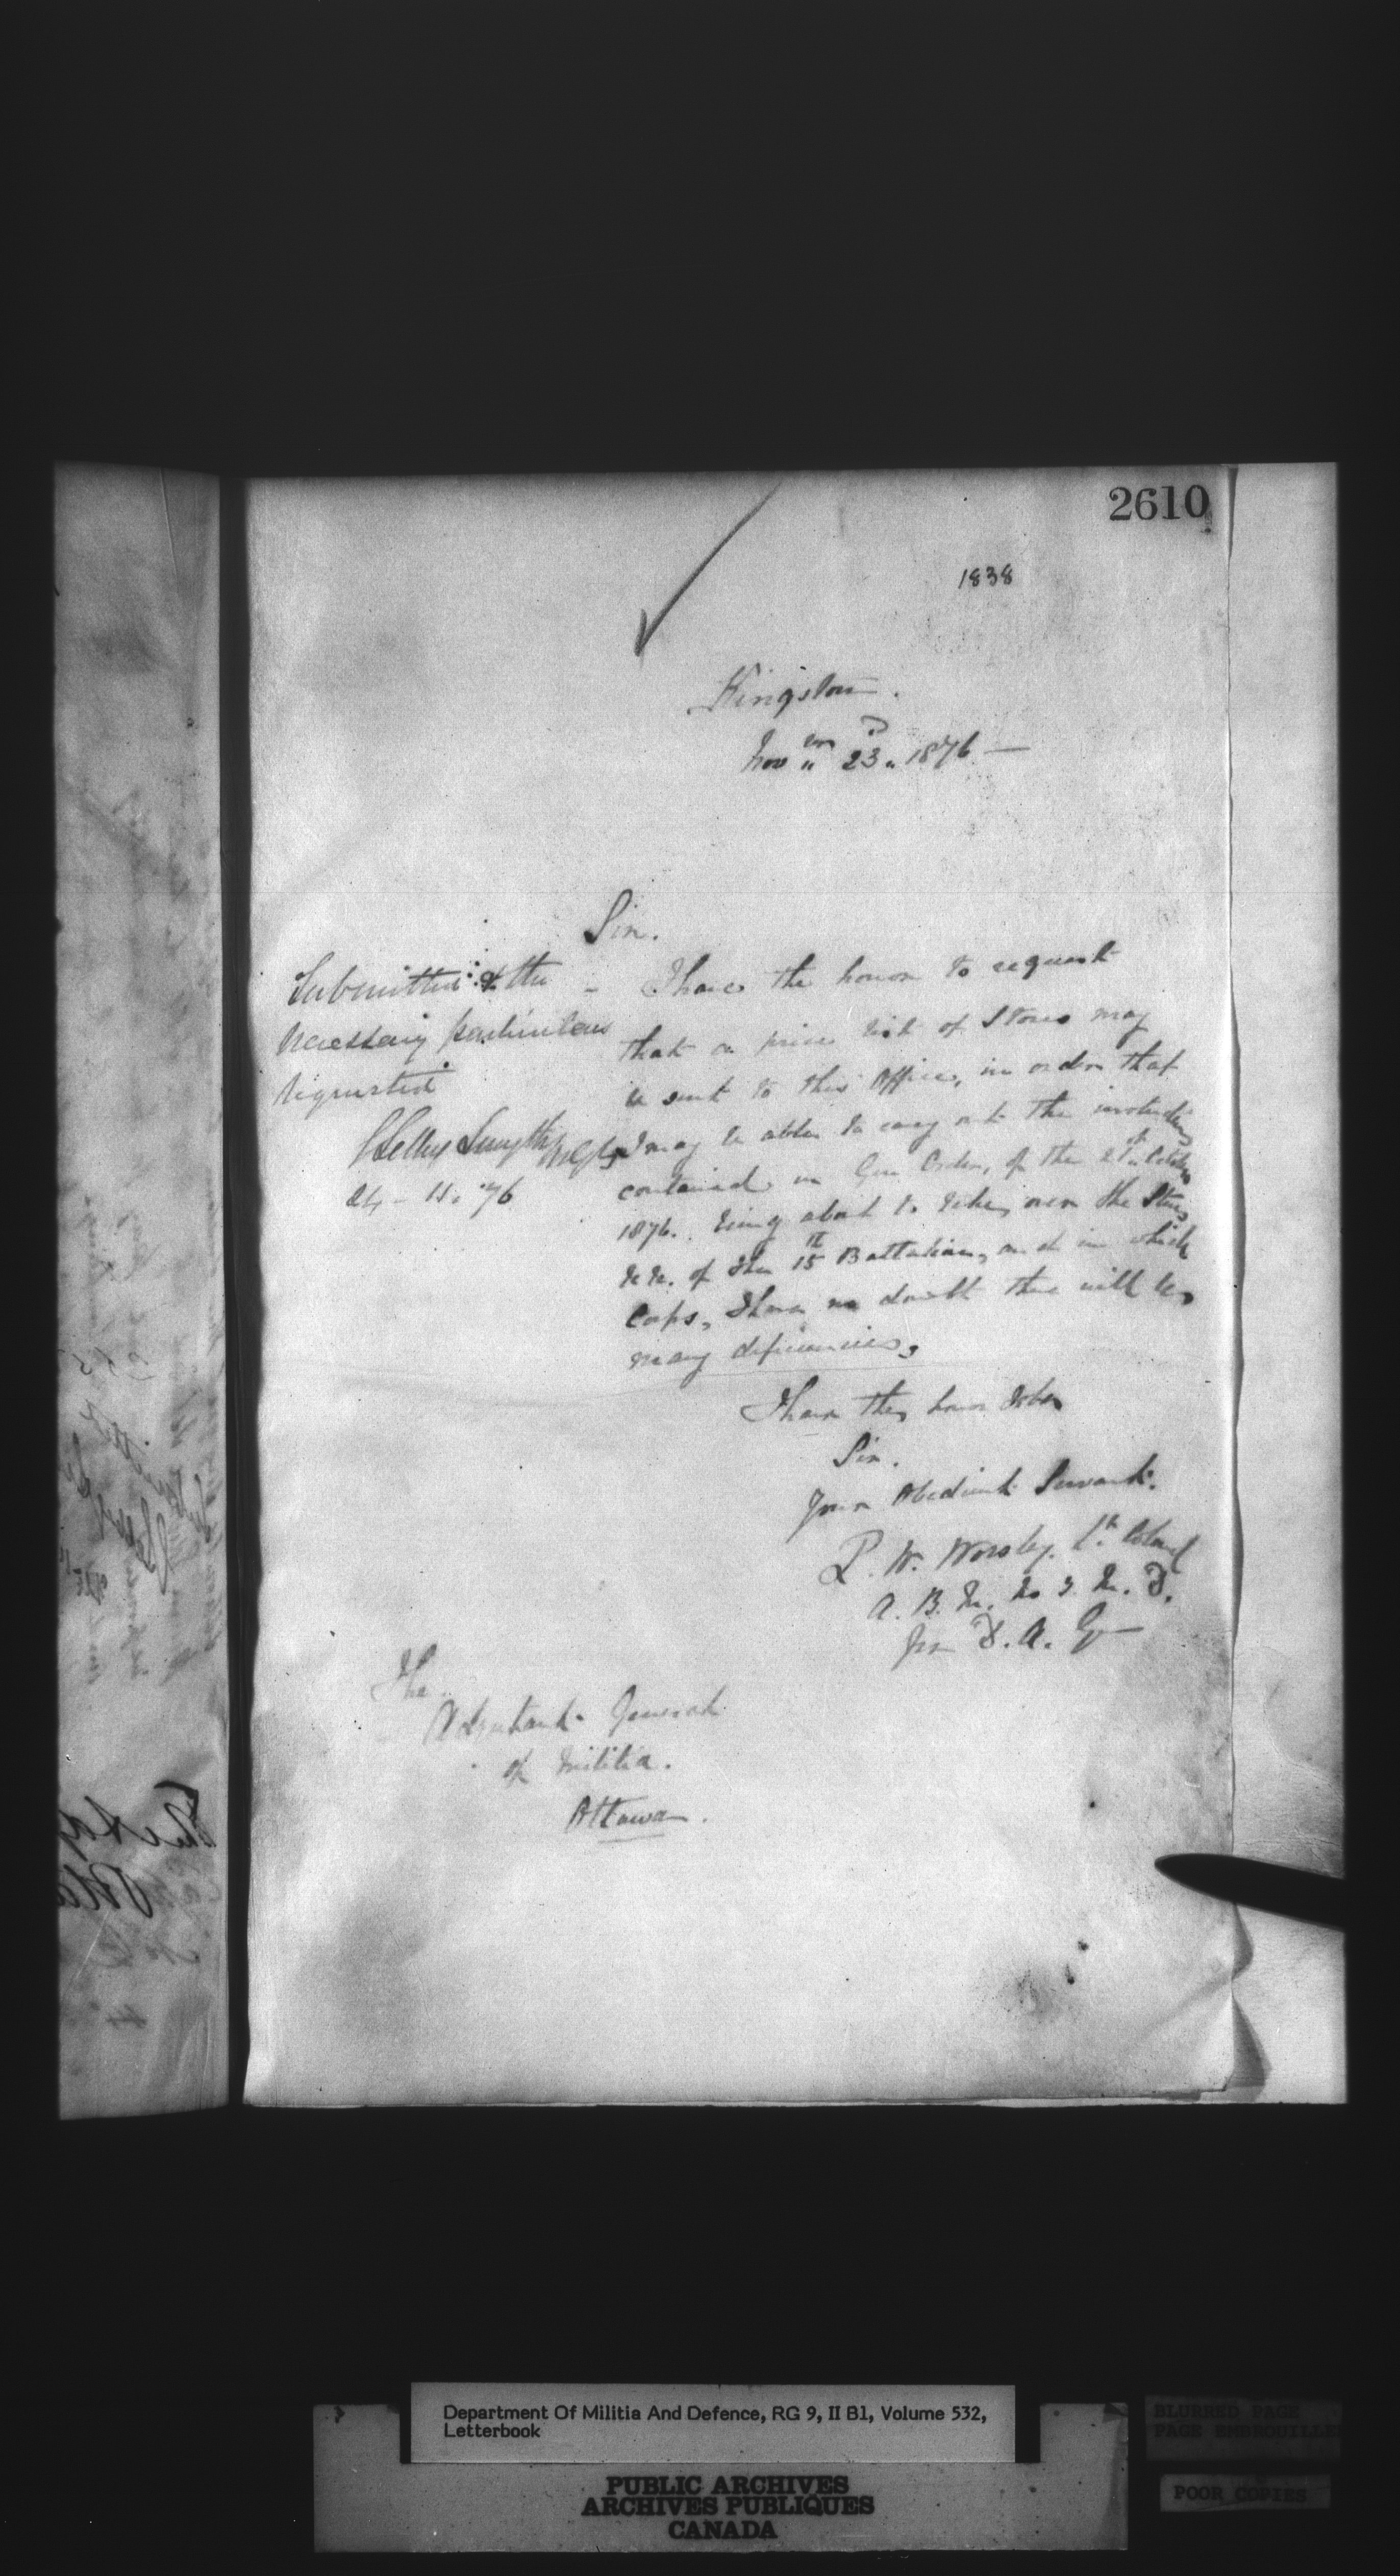 2610
1838
Kingston.
Nov "ber" 23d. 1876 —
Sir.
Submitted & the
necessary particulars
requested
E Selby Smyth M Gl
24 - 11. 76
I have the honor to request
that a price list of Stores may
be sent to this Office, in order that
I may be able to carry out the instructions
contained in Gen Order, of the 21st October
1876. being about to take over the Stores
&c &c. of the 15th Battalion, and in which
Corps, I have no doubt there will be
many deficiencies,
I have the honor to be
Sir.
Your Obedient Servant.
P. W. Worsley. Lt. Colonel
A. B. M. No 3. M. D.
for D. A. G
The
Adjutant General
of Militia.
Ottawa.
Department Of Militia And Defence, RG 9, II B1, Volume 532,
Letterbook
PUBLIC ARCHIVES
ARCHIVES PUBLIQUES
CANADA
BLURRED PAGE
PAGE EMBROUILLE
POOR COPIES